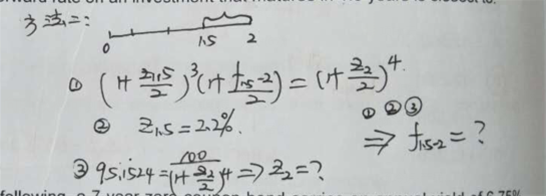 forward rate on an investment that matures in
方法二:
0 1.5 2
① (1+z₁.₅/2)³(1+f₁.₅₋₂/2)=(1+z₂/2)⁴
② z₁.₅=2.2%.
①②③ ⇒ f₁.₅₋₂=?
③ 95.1524=100/(1+z₂/2)4 ⇒ z₂=?
following, a 7-year zero-coupon bond carries an annual yield of 6.75%